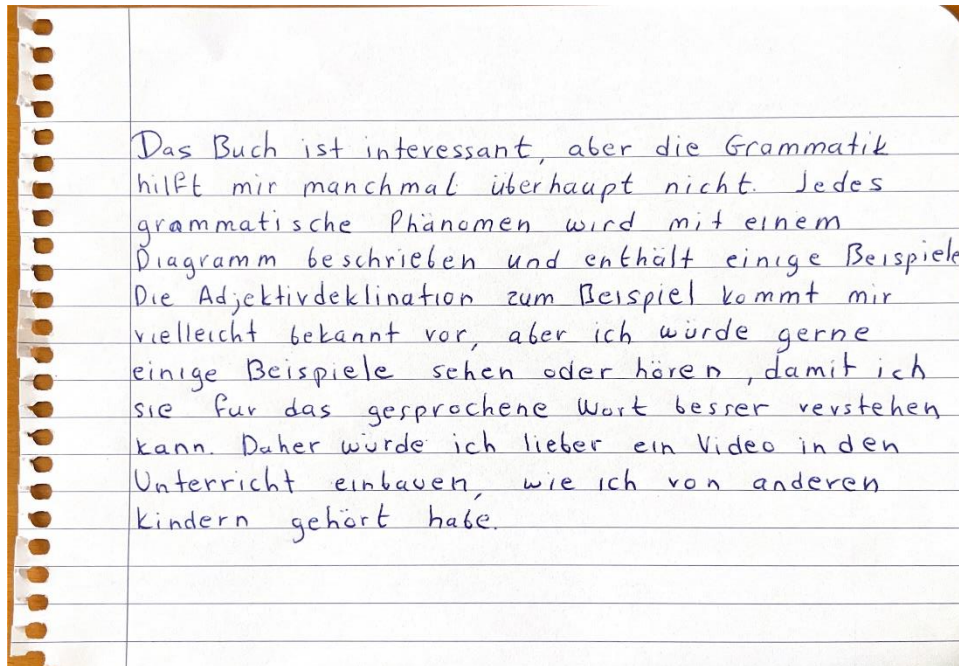 Das Buch ist interessant, aber die Grammatik
hilft mir manchmal überhaupt nicht. Jedes
grammatische Phänomen wird mit einem
Diagramm beschrieben und enthält einige Beispiele
Die Adjektivdeklination zum Beispiel kommt mir
vielleicht bekannt vor, aber ich würde gerne
einige Beispiele sehen oder hören, damit ich
sie fur das gesprochene Wort besser verstehen
kann. Daher würde ich lieber ein Video in den
Unterricht einbauen, wie ich von anderen
Kindern gehört habe.